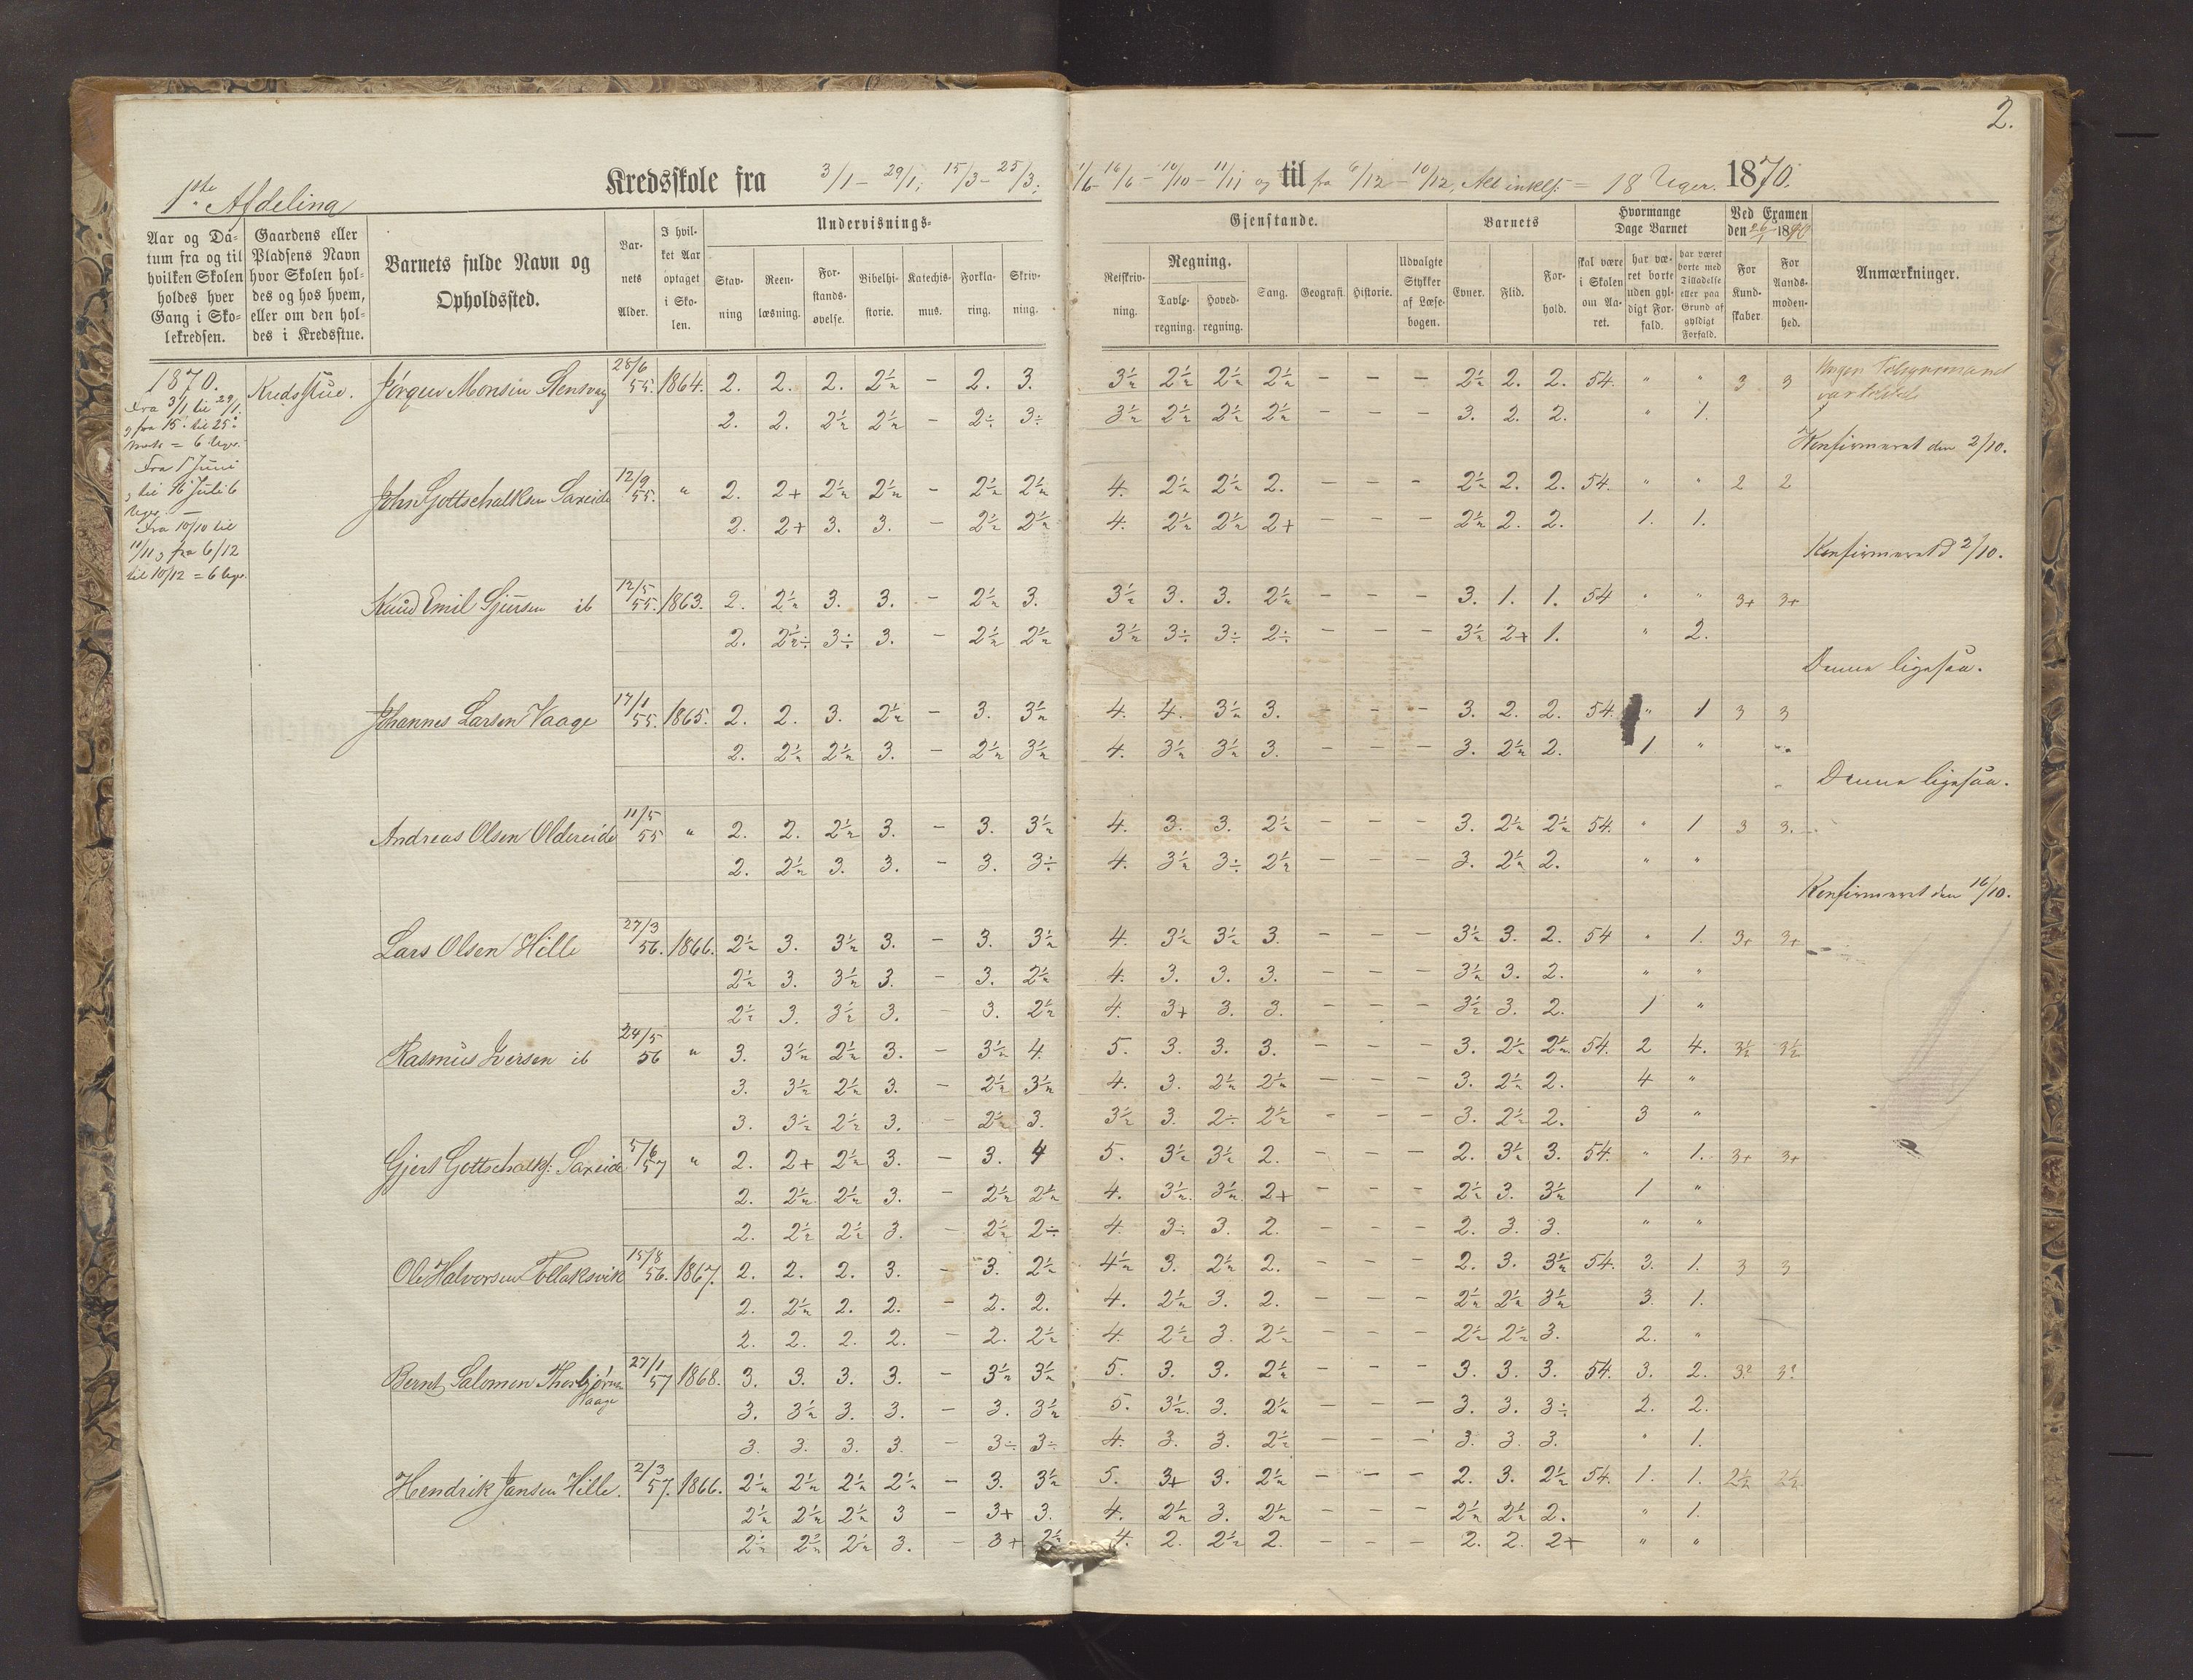 2.
1ste Afdeling
Kredsskole fra 3/1 – 29/1; 15/3 – 25/3; 1/6 – 16/6 – 10/10 – 11/11 og til fra 6/12 – 10/12, = 18 Uger. 1870.
Aar og Datum fra og til hvilken Skolen holdes hver Gang i Skolekredsen.
Gaardens eller Pladsens Navn hvor Skolen holdes og hos hvem, eller om den holdes i Kredsstue.
Barnets fulde Navn og Opholdssted.
Barnets Alder.
I hvilket Aar optaget i Skolen.
Undervisnings-
Stavning
Reenlæsning.
Forstandsøvelse.
Bibelhistorie.
Katechismus.
Forklaring.
Skrivning.
Gjenstande.
Retskrivning.
Regning.
Tavleregning.
Hovedregning.
Sang.
Geografi.
Historie.
Udvalgte Stykker af Læsebogen.
Barnets
Evner.
Flid.
Forhold.
Hvormange Dage Barnet
skal være i Skolen om Aaret.
har været borte uden gyldigt Forfald.
har været borte med Tilladelse eller paa Grund af gyldigt Forfald.
Ved Examen den 26/1 1870
For Kundskaber
For Aandsmodenhed.
Anmærkninger.
1870.
Fra 3/1 til 29/1.
og fra 15. til 25.
Marts = 6 Uger.
Fra 1 Juni
til 16 Juli 6
Uger. –
Fra 10/10 til
11/11 og fra 6/12
til 10/12 = 6 Uger.
Kredsstue.
Jørgen Monsen Stensvag 28/6 55. 1864. 2. 2. 2. 2½ – 2. 3. 3½ 2½ 2½ 2½ – – – 2½ 2. 2. 54. " " 3 3 Ingen Tilsynsmand
2. 2. 2½ 2½ – 2÷ 3÷ 3½ 2½ 2½ 2½ – – – 3. 2. 2. " 1.
Konfirmeret den 2/10.
John Gottschalksen Sareide 12/9 55. " 2. 2+ 2½ 2½ – 2½ 2½ 4. 2½ 2½ 2. – – – 2½ 2. 2. 54. " " 2 2
2. 2+ 3. 3. – 2½ 2½ 4. 2½ 2½ 2+ – – – 2½ 2. 2. 1. 1.
Konfirmeret d 2/10.
Knud Emil Sjursen ib 12/5 55. 1863. 2. 2½ 3. 3. – 2½ 3. 3½ 3. 3. 2½ – – – 3. 1. 1. 54 " " 3+ 3+
2. 2½÷ 3÷ 3. – 2½ 2½ 3½ 3÷ 3÷ 2÷ – – – 3½ 2+ 1. " 2.
Denne ligesaa.
Johannes Larsen Vaage 17/1 55. 1865. 2. 2. 3. 2½ – 3. 3½ 4. 4. 3½ 3. – – – 3. 2. 2. 54. " 1 3 3
2. 2½ 2½ 3. – 2½ 3½ 4. 3½ 3½ 3. – – – 3. 2½ 2. 1 "
Denne ligesaa.
Andreas Olsen Oldereide 11/5 55 " 2. 2. 2½ 3. – 3. 3½ 4. 3. 3. 2½ – – – 3. 2½ 2½ 54. " 1 3 3.
2. 2½ 3. 3. – 3. 3÷ 4. 3½ 3÷ 2½ – – – 3. 2½ 2. " "
Konfirmeret den 16/10.
Lars Olsen Hille 27/3 56. 1866. 2½ 3. 3½ 3. – 3. 3½ 4. 3½ 3½ 3. – – – 3½ 3. 2. 54 " 1. 3+ 3+
2½ 3. 3½ 3. – 3. 2½ 4. 3. 3. 3. – – – 3½ 3. 2. " "
2½ 3. 3½ 3. – 3. 2½ 4. 3+ 3. 3. – – – 3½ 3. 2. 1 "
Rasmus Iversen ib 24/5 56 " 3. 3½ 2½ 3. – 3½ 4. 5. 3. 3. 3. – – – 3. 2½ 2½ 54. 2 4. 3½ 3½
3. 3½ 2½ 3. – 2½ 3½ 4. 3. 2½ 2½ – – – 3. 2½ 2. 4 "
3. 3½ 2½ 3. – 2½ 3. 3½ 3. 2÷ 2½ – – – 3. 2½ 2. 3 "
Gjert Gottschalks: Sareide 5/6 57 " 2. 2+ 2½ 3. – 3. 4 5. 3½ 3½ 2. – – – 2. 3½ 3. 54. " 1. 3+ 3+
2. 2½ 2½ 3. – 2½ 2½ 4. 3½ 3½ 2+ – – – 2½ 3. 3½ 1 "
2. 2½ 2½ 3. – 2½ 2÷ 4. 3÷ 3. 2. – – – 2. 3. 3. " "
Ole Halvorsen Tollaksvik 15/8 56. 1867. 2. 2. 2. 3. – 3. 2½ 4½ 3. 2½ 2. – – 2. 3. 3½ 54. 3. 1. 3 3
2. 2½ 2. 2. – 2. 2. 4. 2½ 3. 2. – – – 2½ 2½ 3½ 3. 1.
2. 2. 2. 2. – 2. 2½ 4. 2½ 3. 2½ – – – 2½ 2½ 3. 2. "
Bernt Salomon Thorbjørns Vaage 27/1 57 1868. 3. 3. 3. 3. – 3½ 3½ 5. 3. 3. 2½ – – – 3. 3. 3. 54. 3. 2. 3? 3?
3. 3½ 3. 3. – 3. 3½ 5. 3½ 3. 2½ – – – 3. 3. 3÷ 2. 2.
3. 3. 3. 3. – 3÷ 3÷ 4. 3. 3. 2½ – – – 3. 3. 3. " 1.
Hendrik Jansen Hille. 2/3 57. 1866. 2½ 2½ 2½ 2½ – 3. 3½ 5. 3+ 3. 2½ – – – 2. 3. 2½ 54. 1. 1. 2½ 2½
2½ 2½ 2½ 3 – 3+ 3. 4. 2½ 3. 2½ – – – 2½ 2½ 2. " 1.
2½ 2½ 2½ 3. – 3+ 2½ 4. 2. 2½ 2. – – – 2. 2. 2+ " "